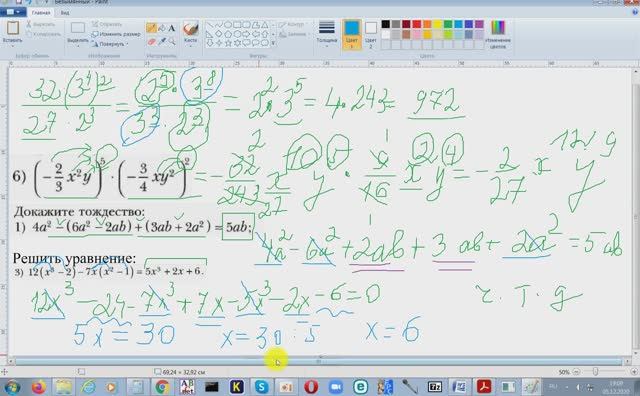 Безымянный - Paint
Главная Вид
Вставить
Вырезать
Копировать
Выделить
Обрезать
Изменить размер
Повернуть
Кисти
Контур
Заливка
Толщина
Цвет 1
Цвет 2
Изменение цветов
32(3⁴)² / 2⁷·2³ = 2⁵·3⁸ / 3³·2³ = 2²·3⁵ = 4·243 = 972
6) (-2/3 x²y)⁵ · (-3/4 xy²)² = -32/243 x¹⁰ y⁵ · 9/16 x² y⁴ = -2/27 x¹² y⁹
Докажите тождество:
1) 4a² - (6a² - 2ab) + (3ab + 2a²) = 5ab;
4a² - 6a² + 2ab + 3ab + 2a² = 5ab
Решить уравнение:
3) 12(x³ - 2) - 7x(x² - 1) = 5x³ + 2x + 6.
12x³ - 24 - 7x³ + 7x - 5x³ - 2x - 6 = 0
ч. т. д
5x = 30 x = 30 : 5 x = 6
69,24 × 32,92 см
50%
RU
19:09
05.12.2020